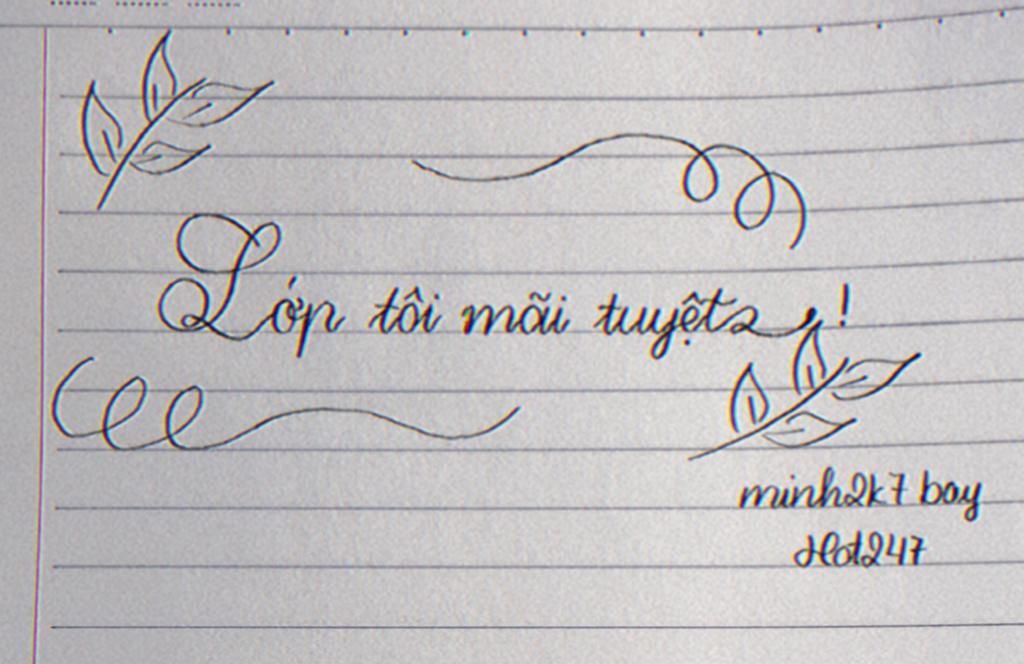 Lớp tôi mãi tuyệt!
minh2k7 boy
Hot247